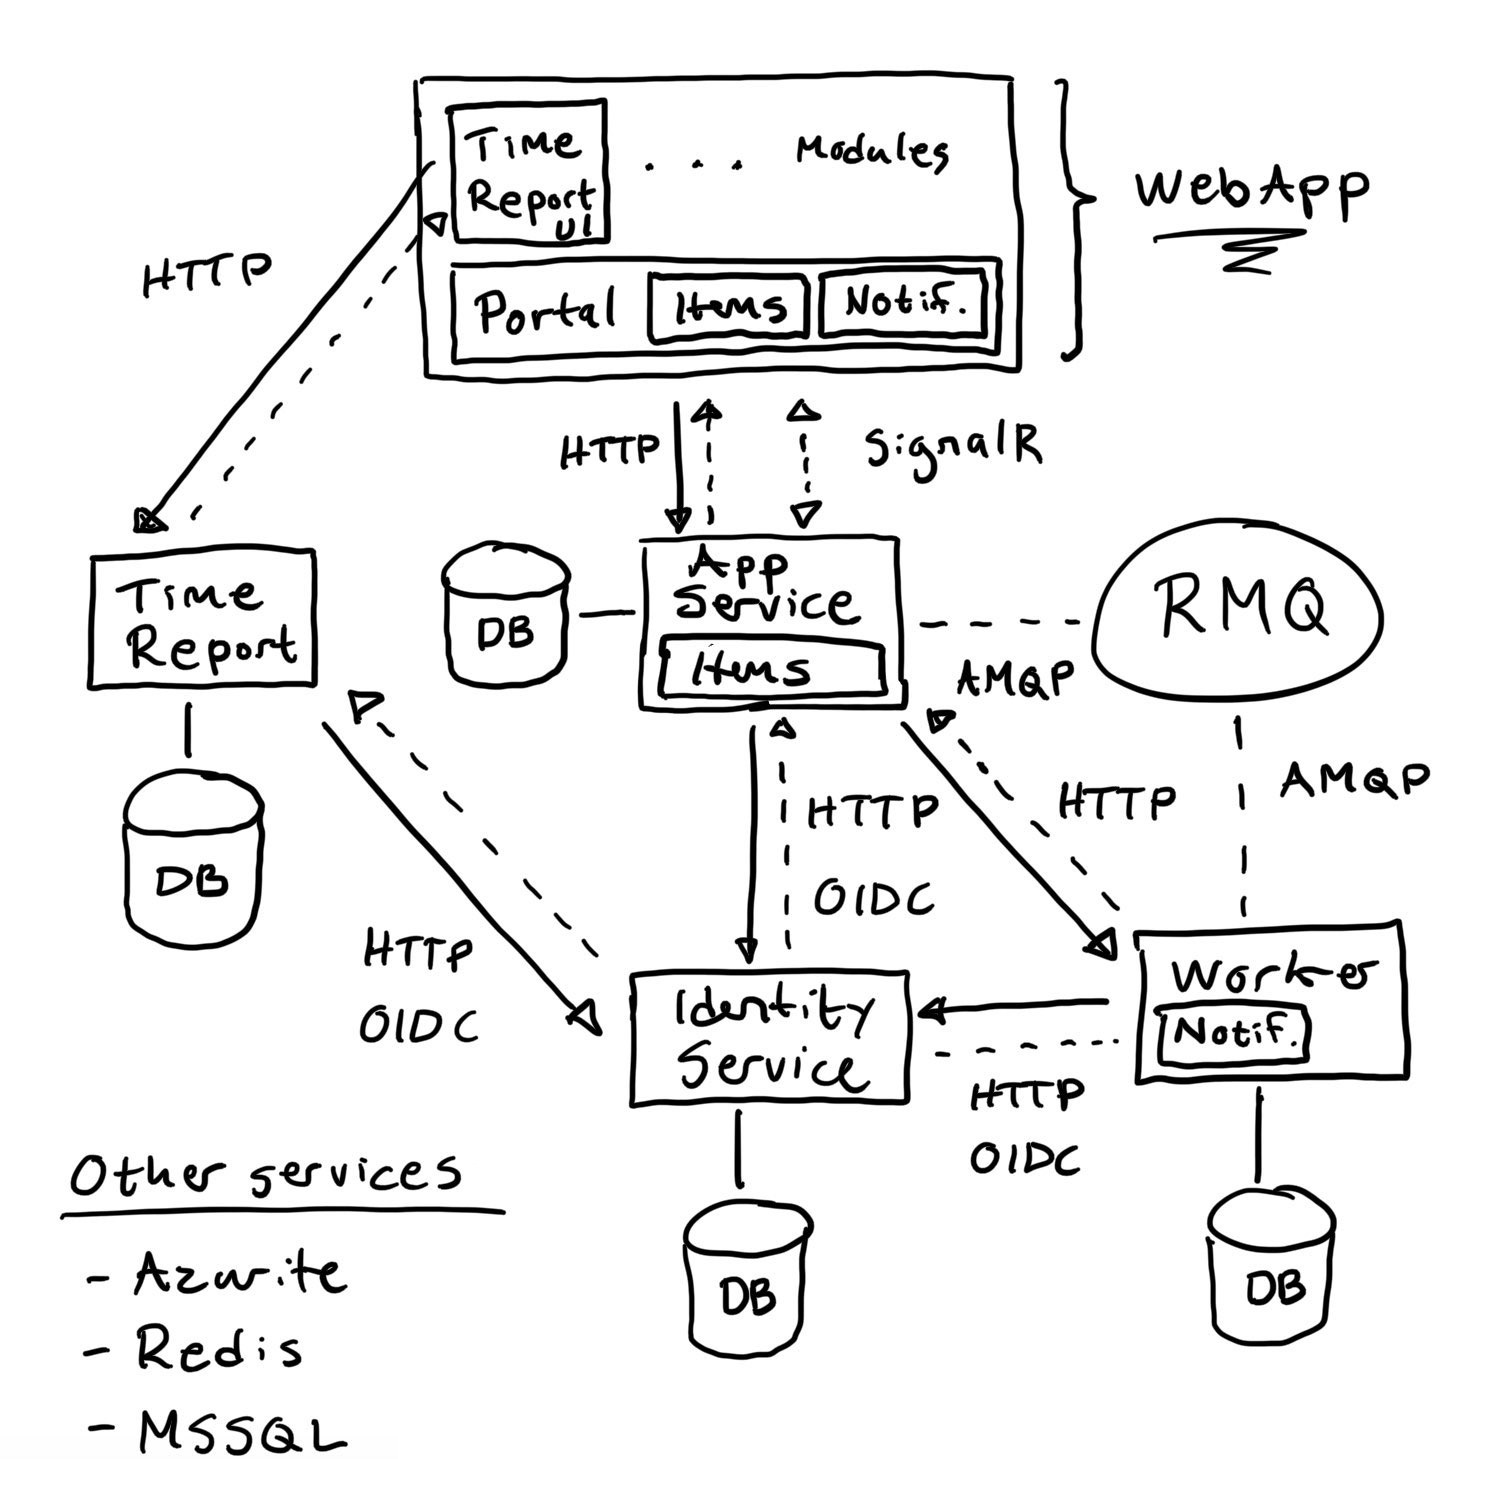 Time
Report
UI
. . . Modules
WebApp
Portal
Items
Notif.
HTTP
HTTP
SignalR
Time
Report
DB
App
Service
Items
RMQ
AMQP
AMQP
HTTP
HTTP
OIDC
DB
HTTP
OIDC
Identity
Service
Worker
Notif.
HTTP
OIDC
DB
DB
Other services
- Azurite
- Redis
- MSSQL